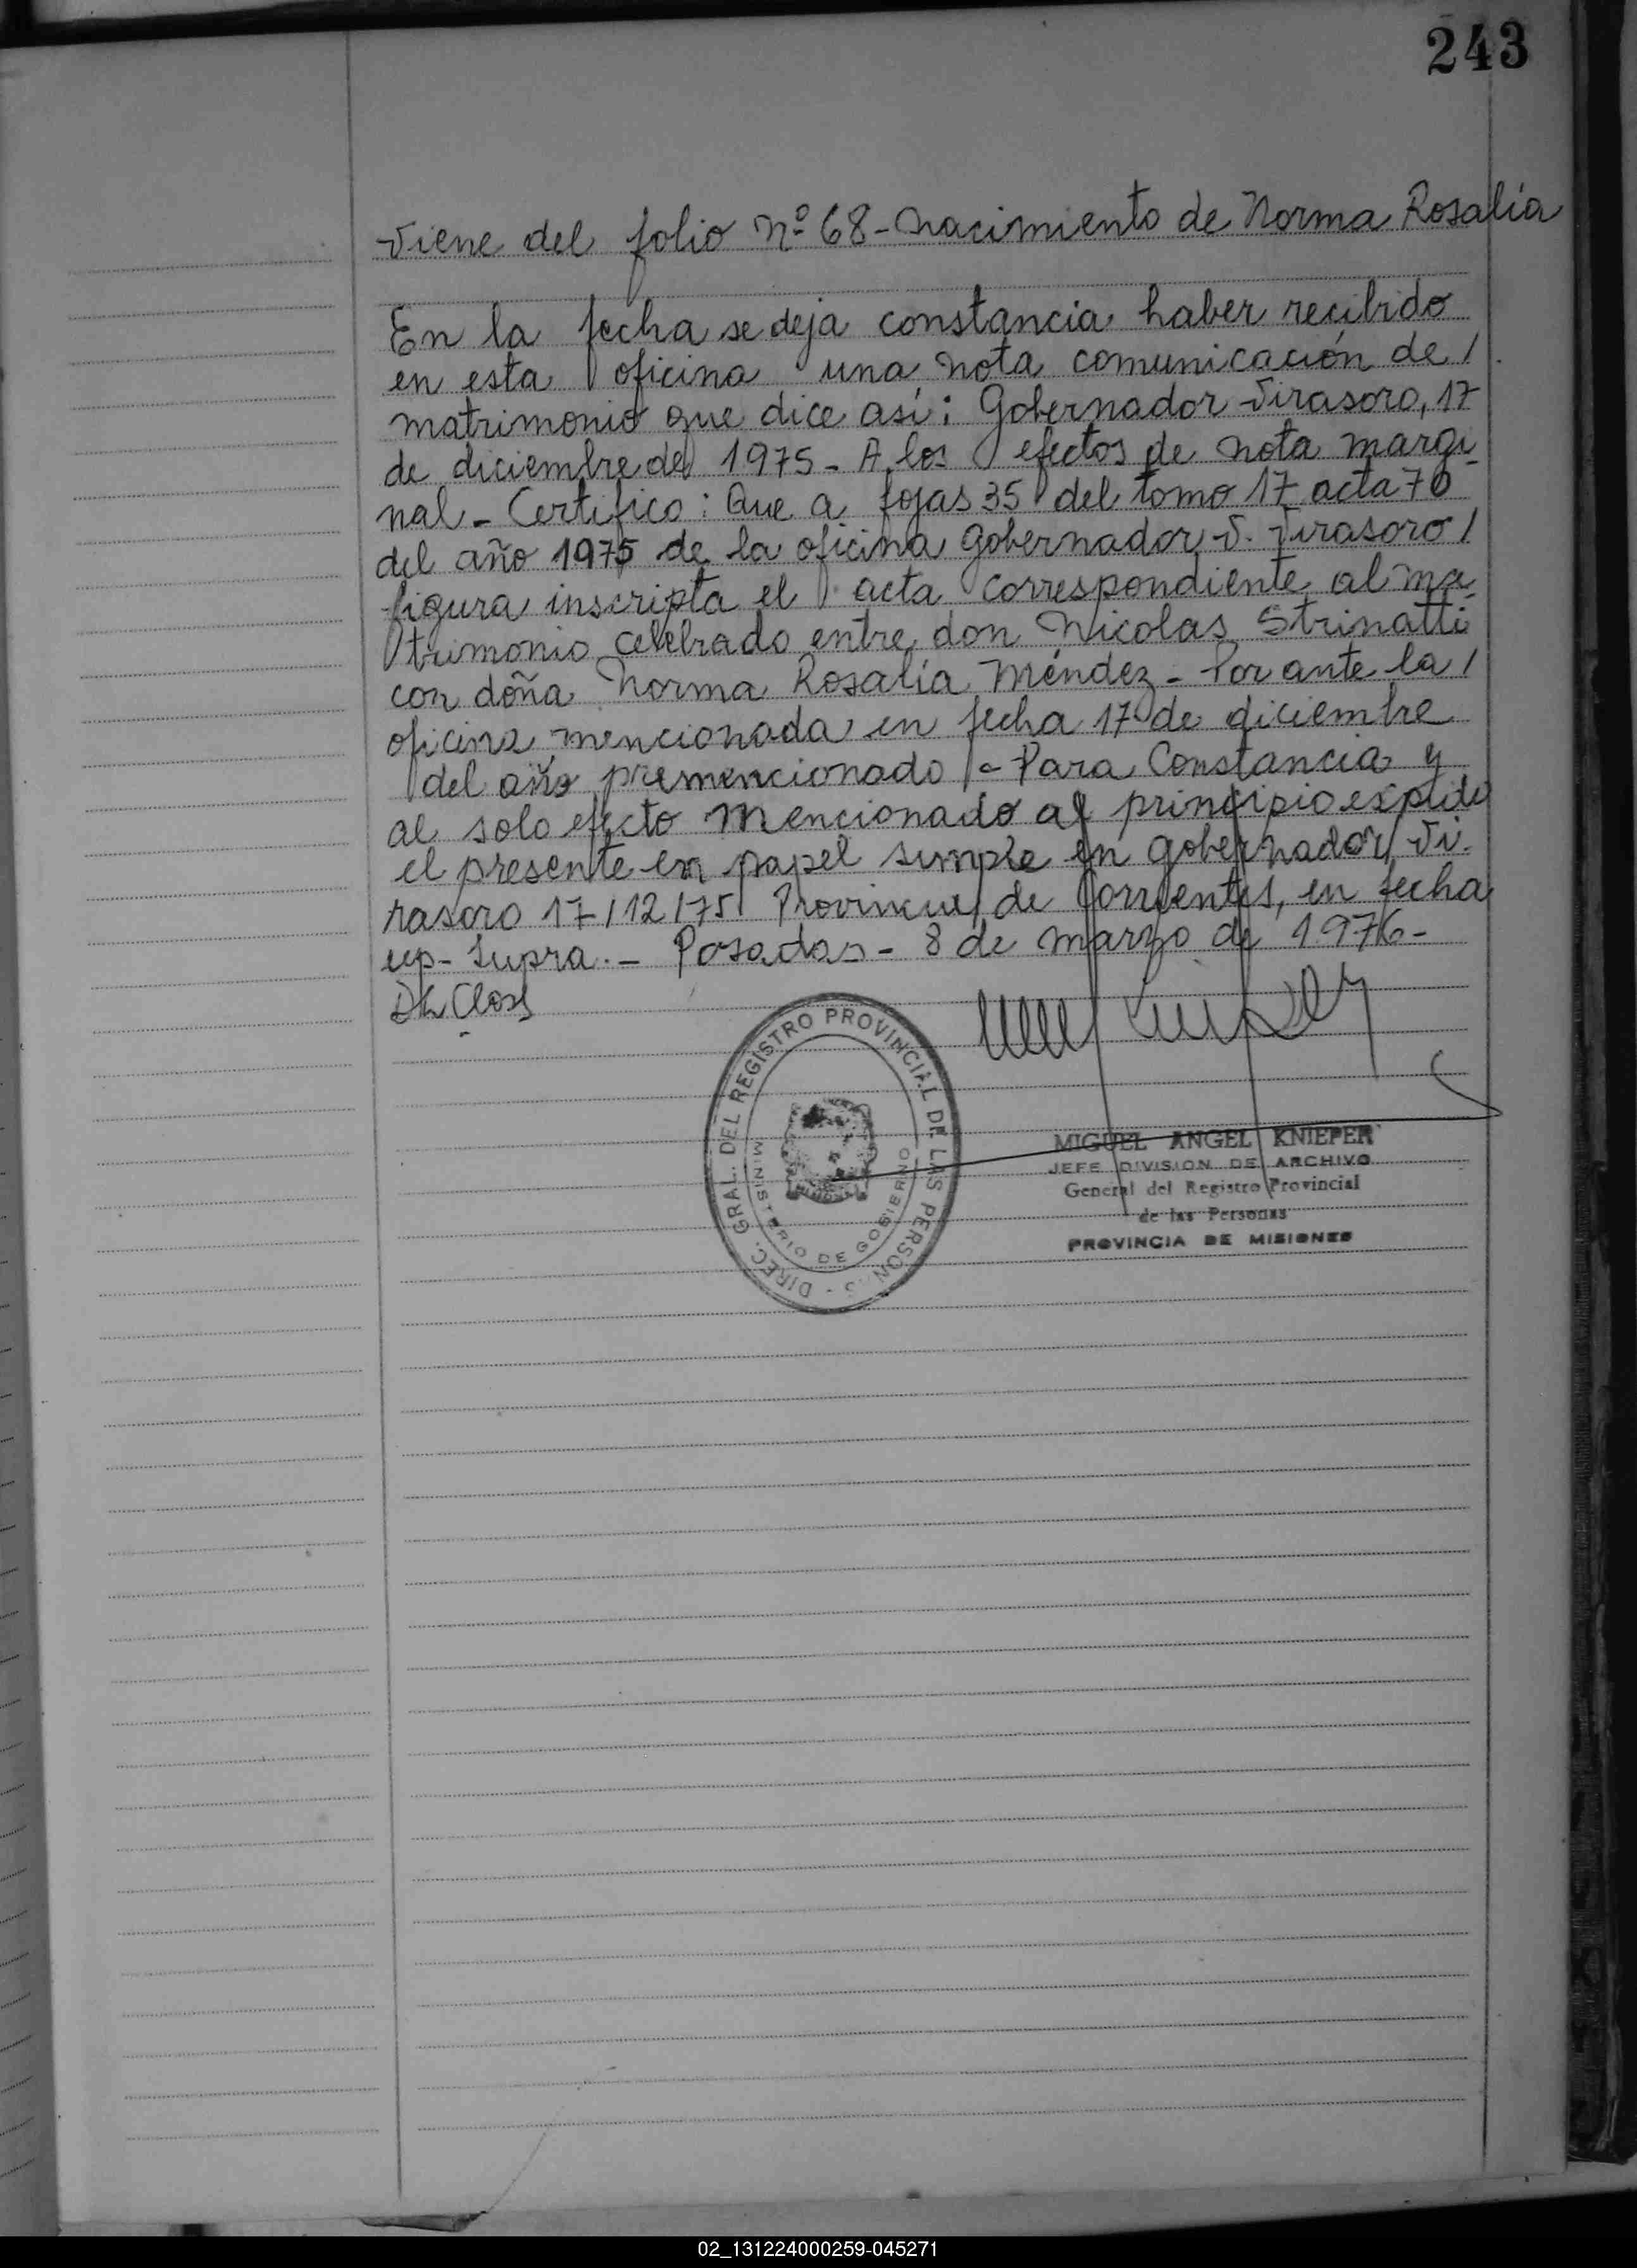 243
Viene del folio Nº 68 - Nacimiento de Norma Rosalía
En la fecha se deja constancia haber recibido
en esta oficina una nota comunicación de /
matrimonio que dice así: Gobernador Virasoro, 17
de diciembre de 1975 - A los efectos de nota margi-
nal - Certifico: Que a fojas 35 del tomo 17 acta 70
del año 1975 de la oficina Gobernador V. Virasoro /
figura inscripta el acta correspondiente al ma-
trimonio celebrado entre don Nicolas Strinatti
con doña Norma Rosalía Méndez - Por ante la /
oficina mencionada en fecha 17 de diciembre
del año premencionado - Para Constancia y
al solo efecto mencionado al principio expido
el presente en papel simple en gobernador Vi-
rasoro 17/12/75 Provincia de Corrientes, en fecha
up-supra. - Posadas - 8 de marzo de 1976 -
DIREC. GRAL. DEL REGISTRO PROVINCIAL DE LAS PERSON S -
MINISTERIO DE GOBIERNO
MISIONES
MIGUEL ANGEL KNIEPER
JEFE DIVISION DE ARCHIVO
General del Registro Provincial
de las Personas
PROVINCIA DE MISIONES
02_131224000259-045271